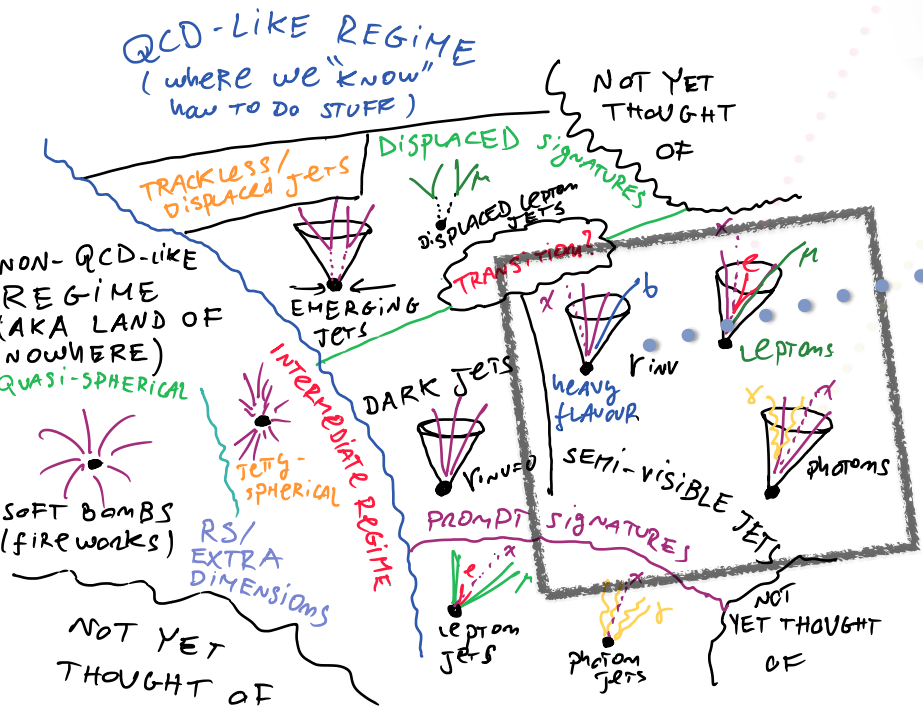 QCD-LIKE REGIME
(WHERE WE "KNOW"
HOW TO DO STUFF)
NOT YET
THOUGHT
OF
TRACKLESS/
DISPLACED JETS
DISPLACED SIGNATURES
μ
DISPLACED LEPTON
JETS
TRANSITION?
EMERGING
JETS
NON-QCD-LIKE
REGIME
(AKA LAND OF
NOWHERE)
QUASI-SPHERICAL
SOFT BOMBS
(fireworks)
JETTY-
SPHERICAL
RS/
EXTRA
DIMENSIONS
INTERMEDIATE REGIME
NOT YET
THOUGHT OF
DARK JETS
rINV=0
χ
b
HEAVY
FLAVOUR
rINV
χ
e
μ
LEPTONS
γ
χ
PHOTONS
SEMI-VISIBLE JETS
PROMPT SIGNATURES
e
χ
μ
LEPTON
JETS
χ
γ
PHOTON
JETS
NOT
YET THOUGHT
OF